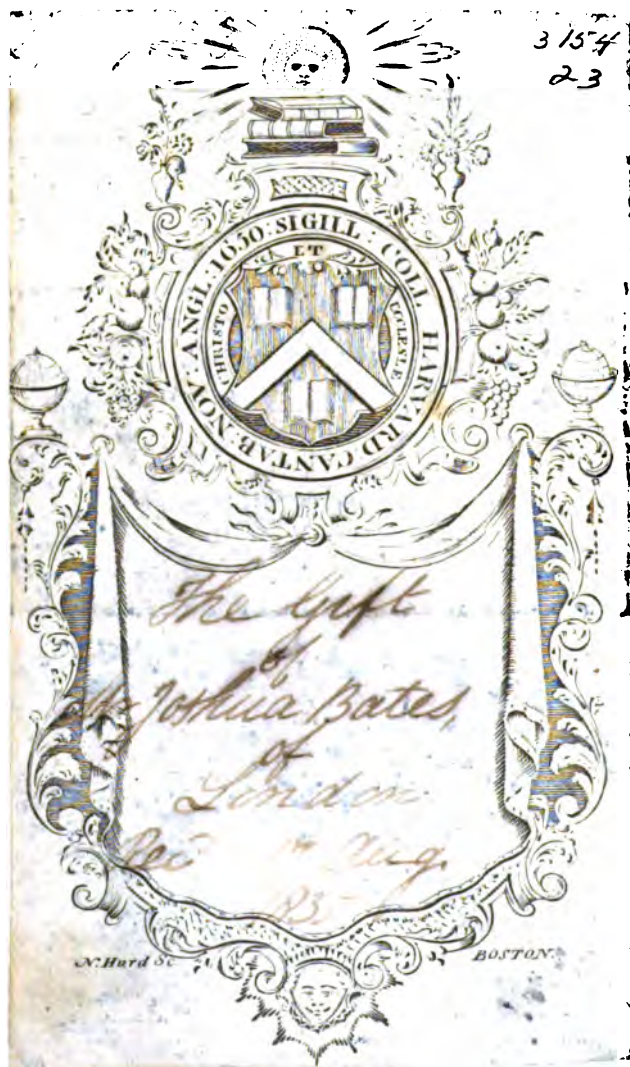 3154
23
SIGILL : COLL HARVARD CANTAB : NOV ANGL · 1650 :
ET
HRISTO
ECCLESIÆ
The Gift
of
Mr Joshua Bates,
of
London
Rec Aug.
N. Hurd Sc
BOSTON.